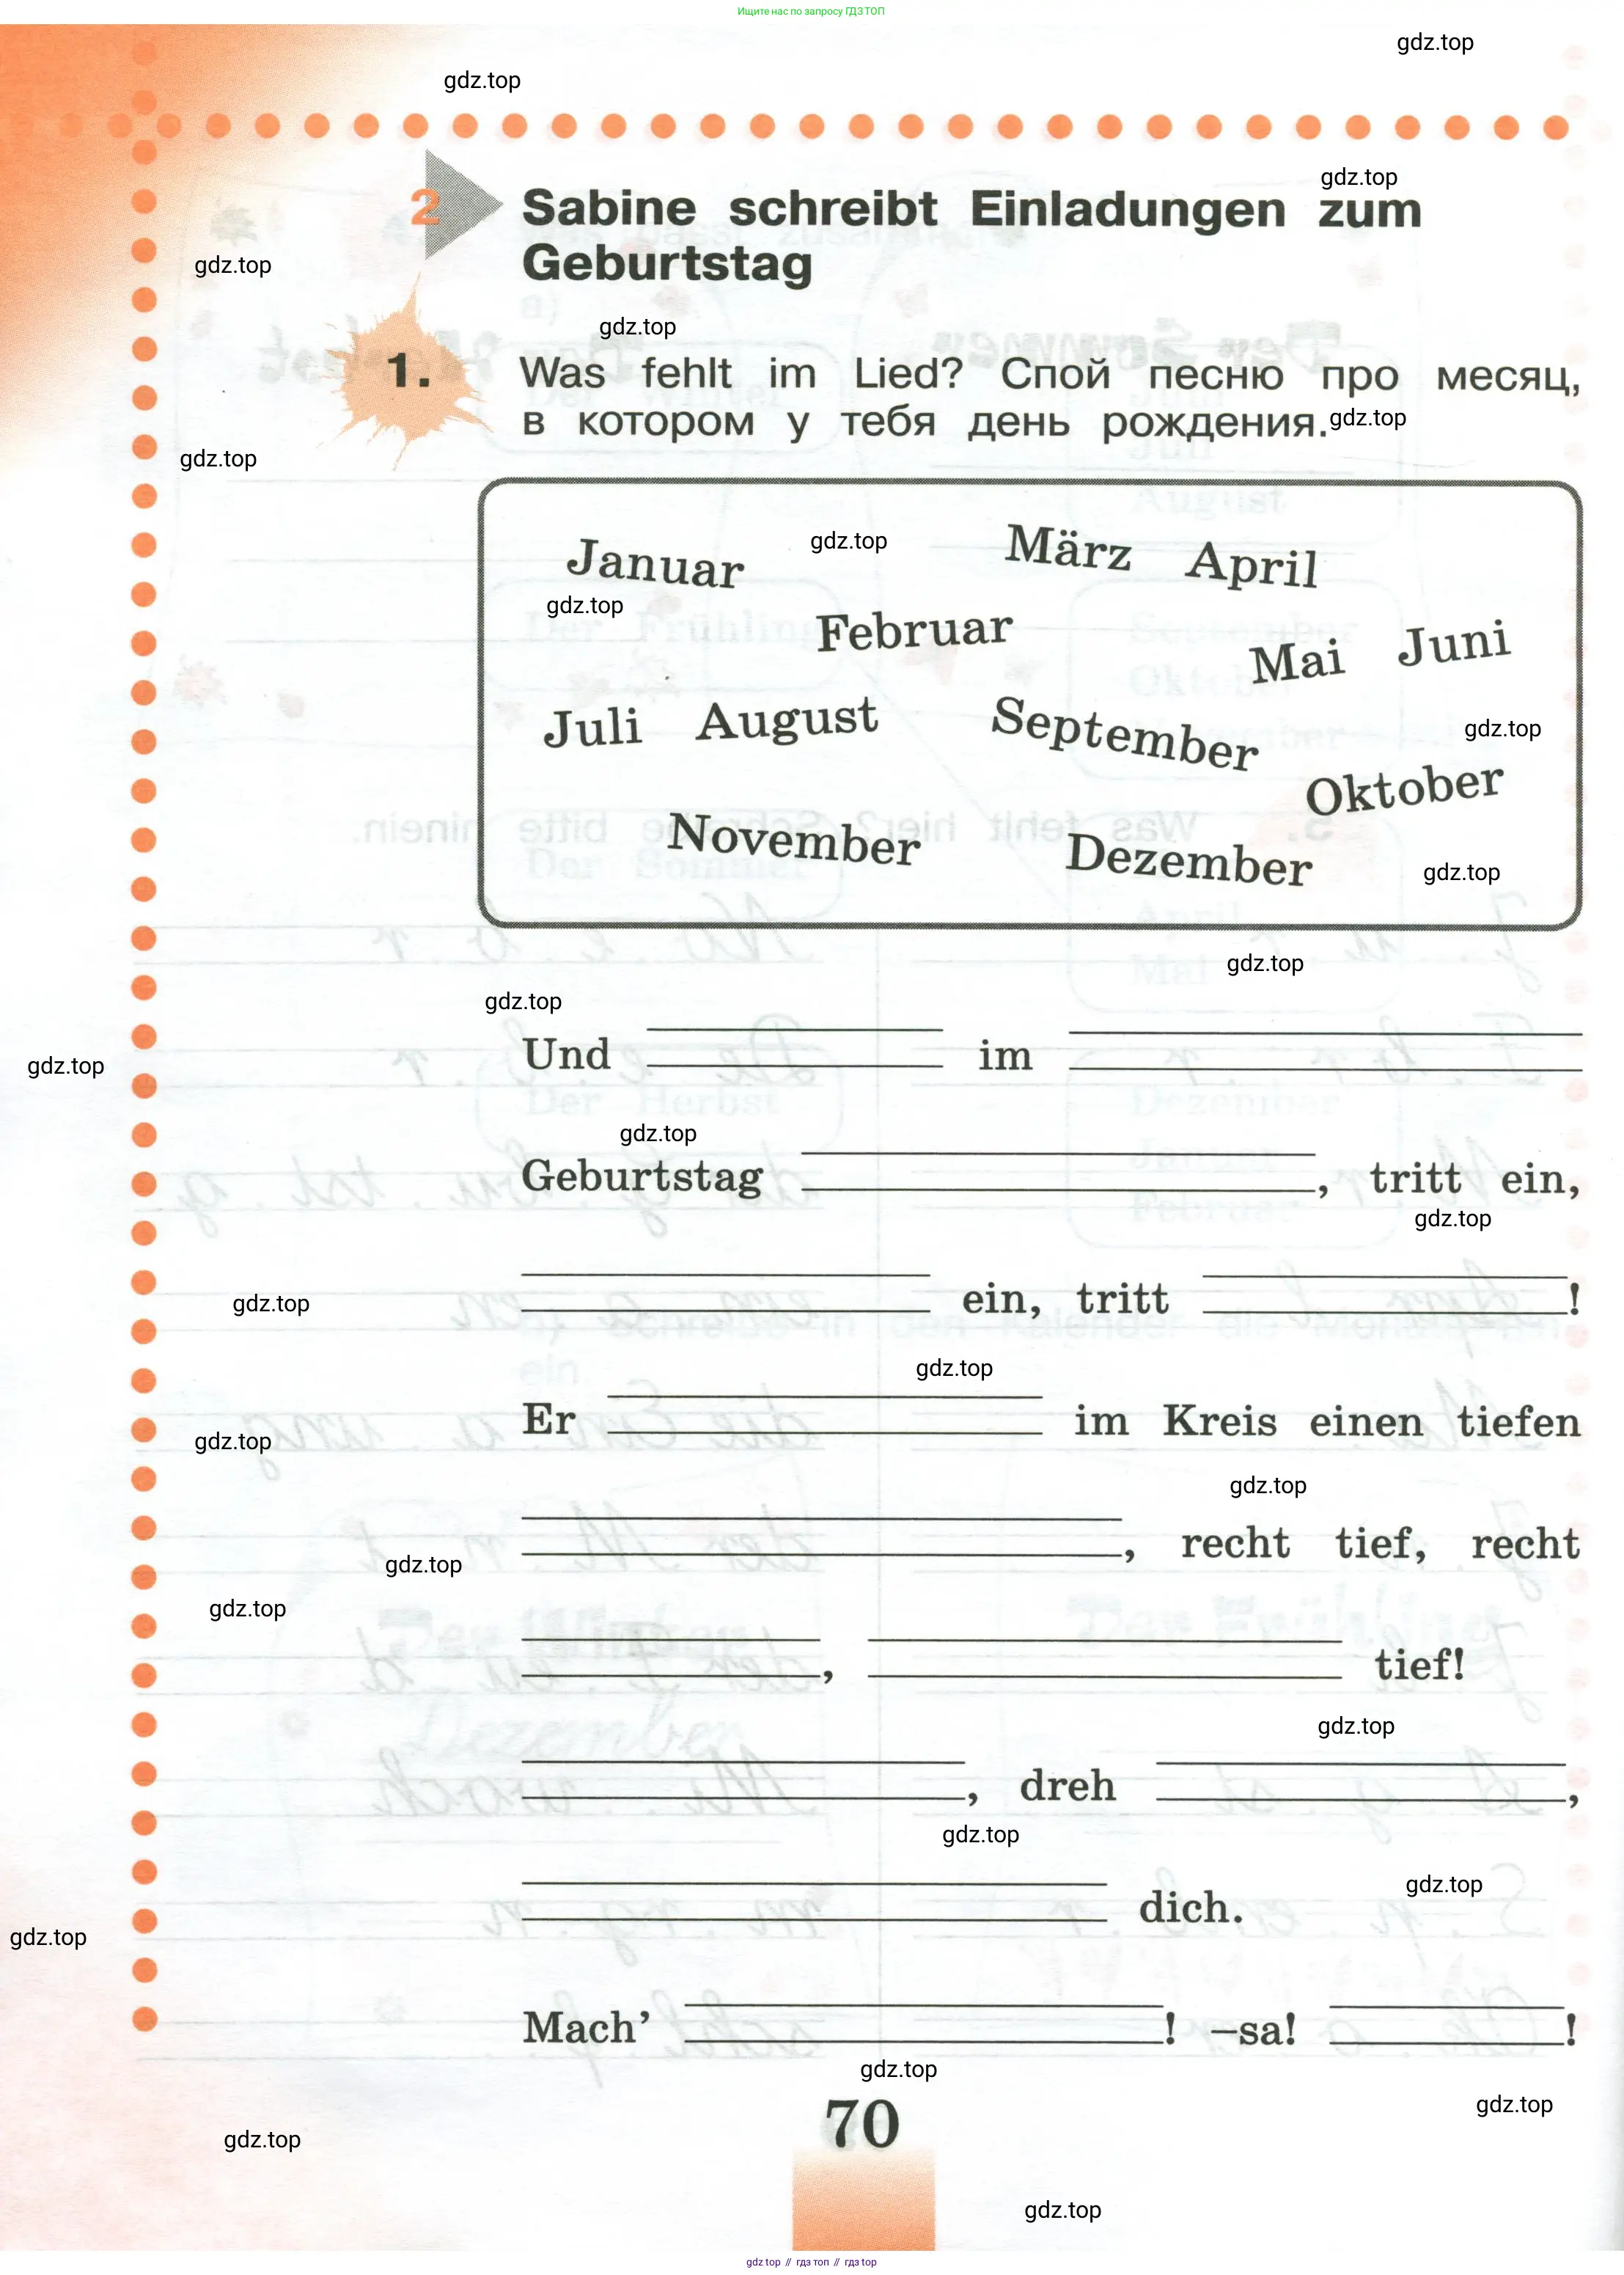 Ищите нас по запросу ГДЗ ТОП
gdz.top
gdz.top
2 Sabine schreibt Einladungen zum
gdz.top
Geburtstag
gdz.top
gdz.top
1. Was fehlt im Lied? Спой песню про месяц,
в котором у тебя день рождения.
gdz.top
gdz.top
Januar
gdz.top
März April
gdz.top
Februar
Mai Juni
Juli August September
gdz.top
Oktober
November Dezember
gdz.top
gdz.top
gdz.top
Und im
gdz.top
gdz.top
Geburtstag , tritt ein,
gdz.top
gdz.top
ein, tritt !
gdz.top
Er im Kreis einen tiefen
gdz.top
gdz.top
, recht tief, recht
gdz.top
gdz.top
, tief!
gdz.top
, dreh ,
gdz.top
gdz.top
dich.
gdz.top
Mach’ ! –sa! !
gdz.top
gdz.top
70
gdz.top
gdz.top
gdz top // гдз топ // гдз top